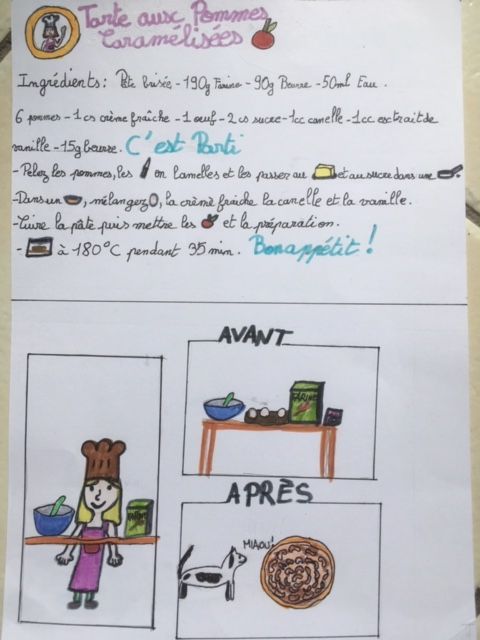 Tarte aux Pommes
Caramélisées
Ingrédients: Pâte brisée - 190g Farine - 90g Beurre - 50ml Eau.
6 pommes - 1 cs crème fraîche - 1 oeuf - 2 cs sucre - 1cc canelle - 1cc esctrait de
vanille - 15g beurre. C'est Parti
- Pelez les pommes, les en lamelles et les passer au et au sucre dans une .
- Dans un , mélangez , la crème fraîche la canelle et la vanille.
- Cuire la pâte puis mettre les et la préparation.
- à 180°C pendant 35 min. Bon appétit !
AVANT
FARINE
APRÈS
MIAOU!